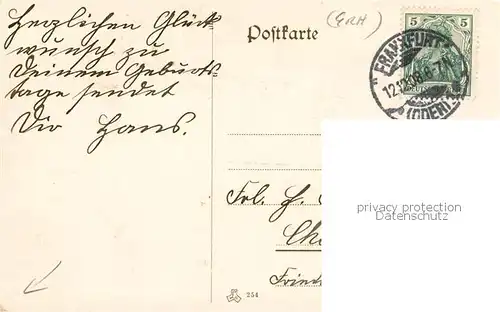 Herzlichen Glück-
wunsch zu
Deinem Geburts-
tage sendet
Dir Hans.
Postkarte
(GRH)
5 5
FRANKFURT
12.12.08. 6-7 N.
(ODER)
Frl. H.
Ch
Fried
254
privacy protection
Datenschutz